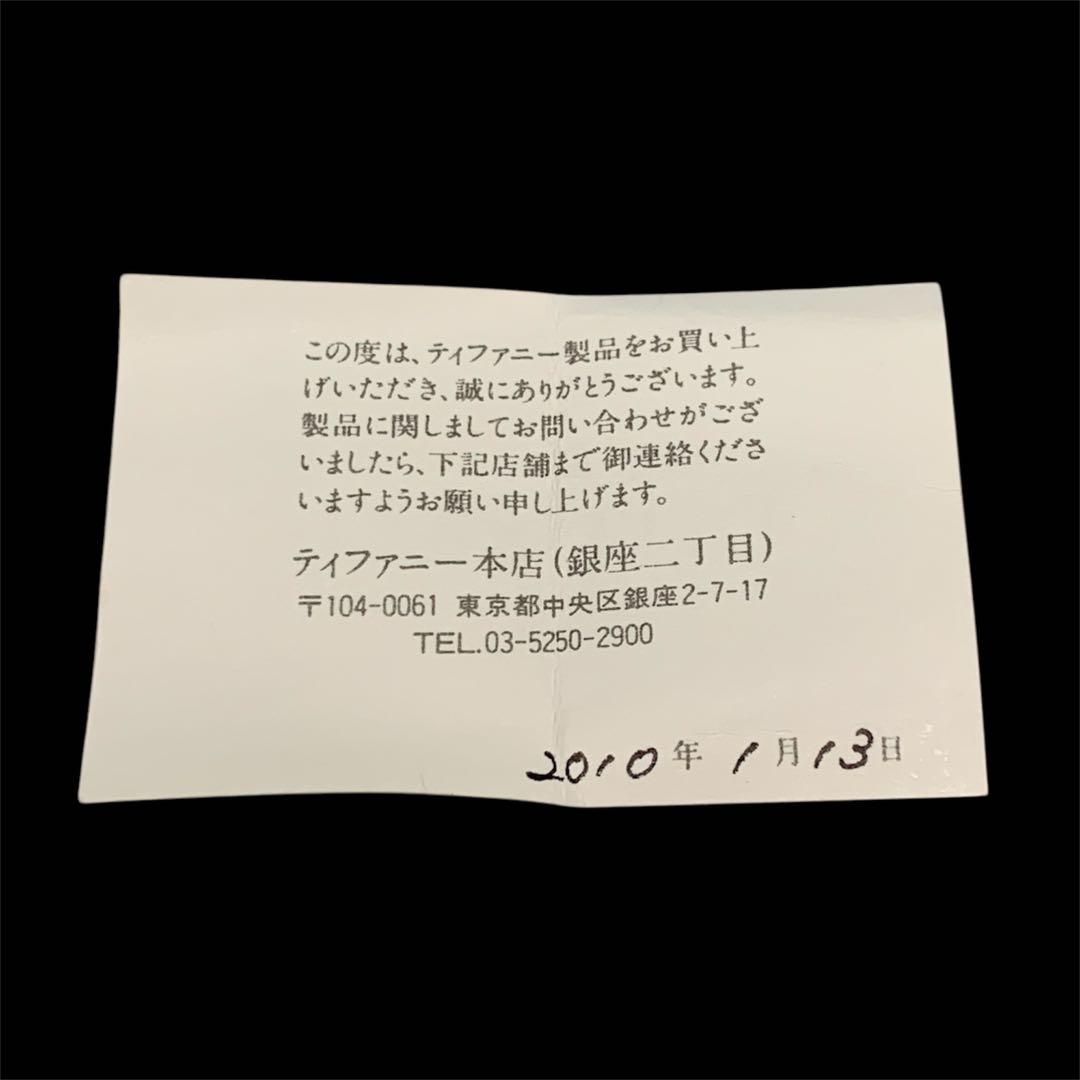 この度は、ティファニー製品をお買い上
げいただき、誠にありがとうございます。
製品に関しましてお問い合わせがござ
いましたら、下記店舗まで御連絡くださ
いますようお願い申し上げます。
ティファニー本店(銀座二丁目)
〒104-0061 東京都中央区銀座2-7-17
TEL.03-5250-2900
2010年 1月13日